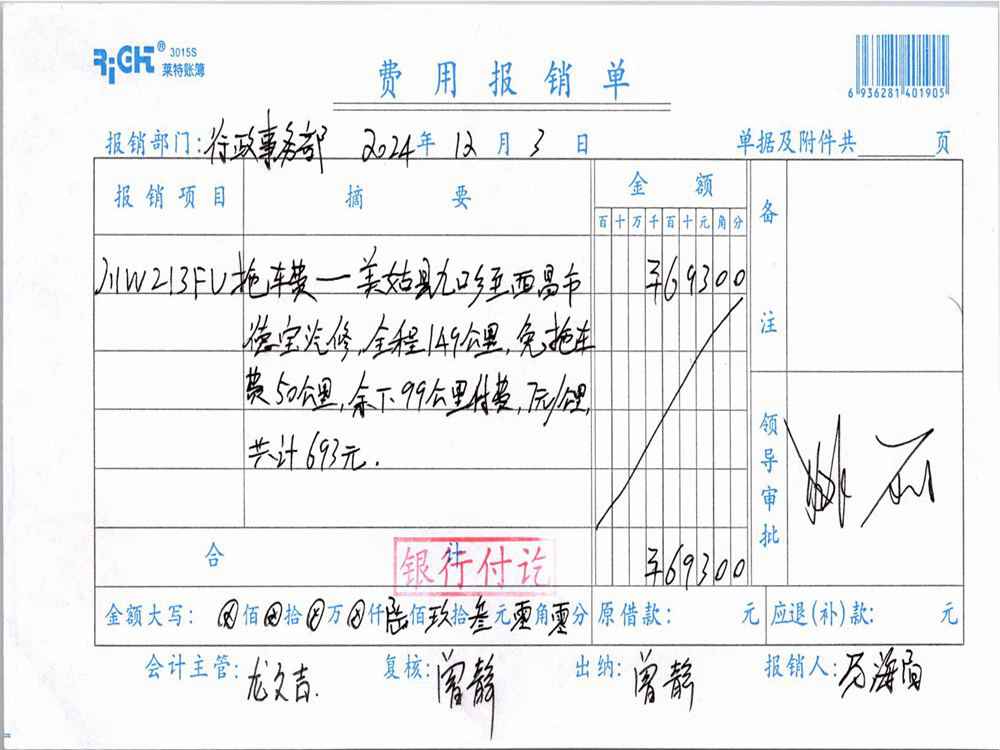 RiGHT® 3015S
莱特账簿
费用报销单
6 936281 401905
报销部门：行政事务部 2024年12月3日 单据及附件共 页
报销项目 摘要 金额 备注
百十万千百十元角分
川W213FU 拖车费一美姑县九口乡至西昌市 ¥69300
德宝汽修，全程149公里，免拖车
费50公里，余下99公里付费，7元/公里，
共计693元.
领导审批
合计 ¥69300
银行付讫
金额大写：⊗佰⊗拾⊗万⊗仟陆佰玖拾叁元零角零分 原借款： 元 应退(补)款： 元
会计主管：龙文吉. 复核：曾静 出纳：曾静 报销人：万海阳